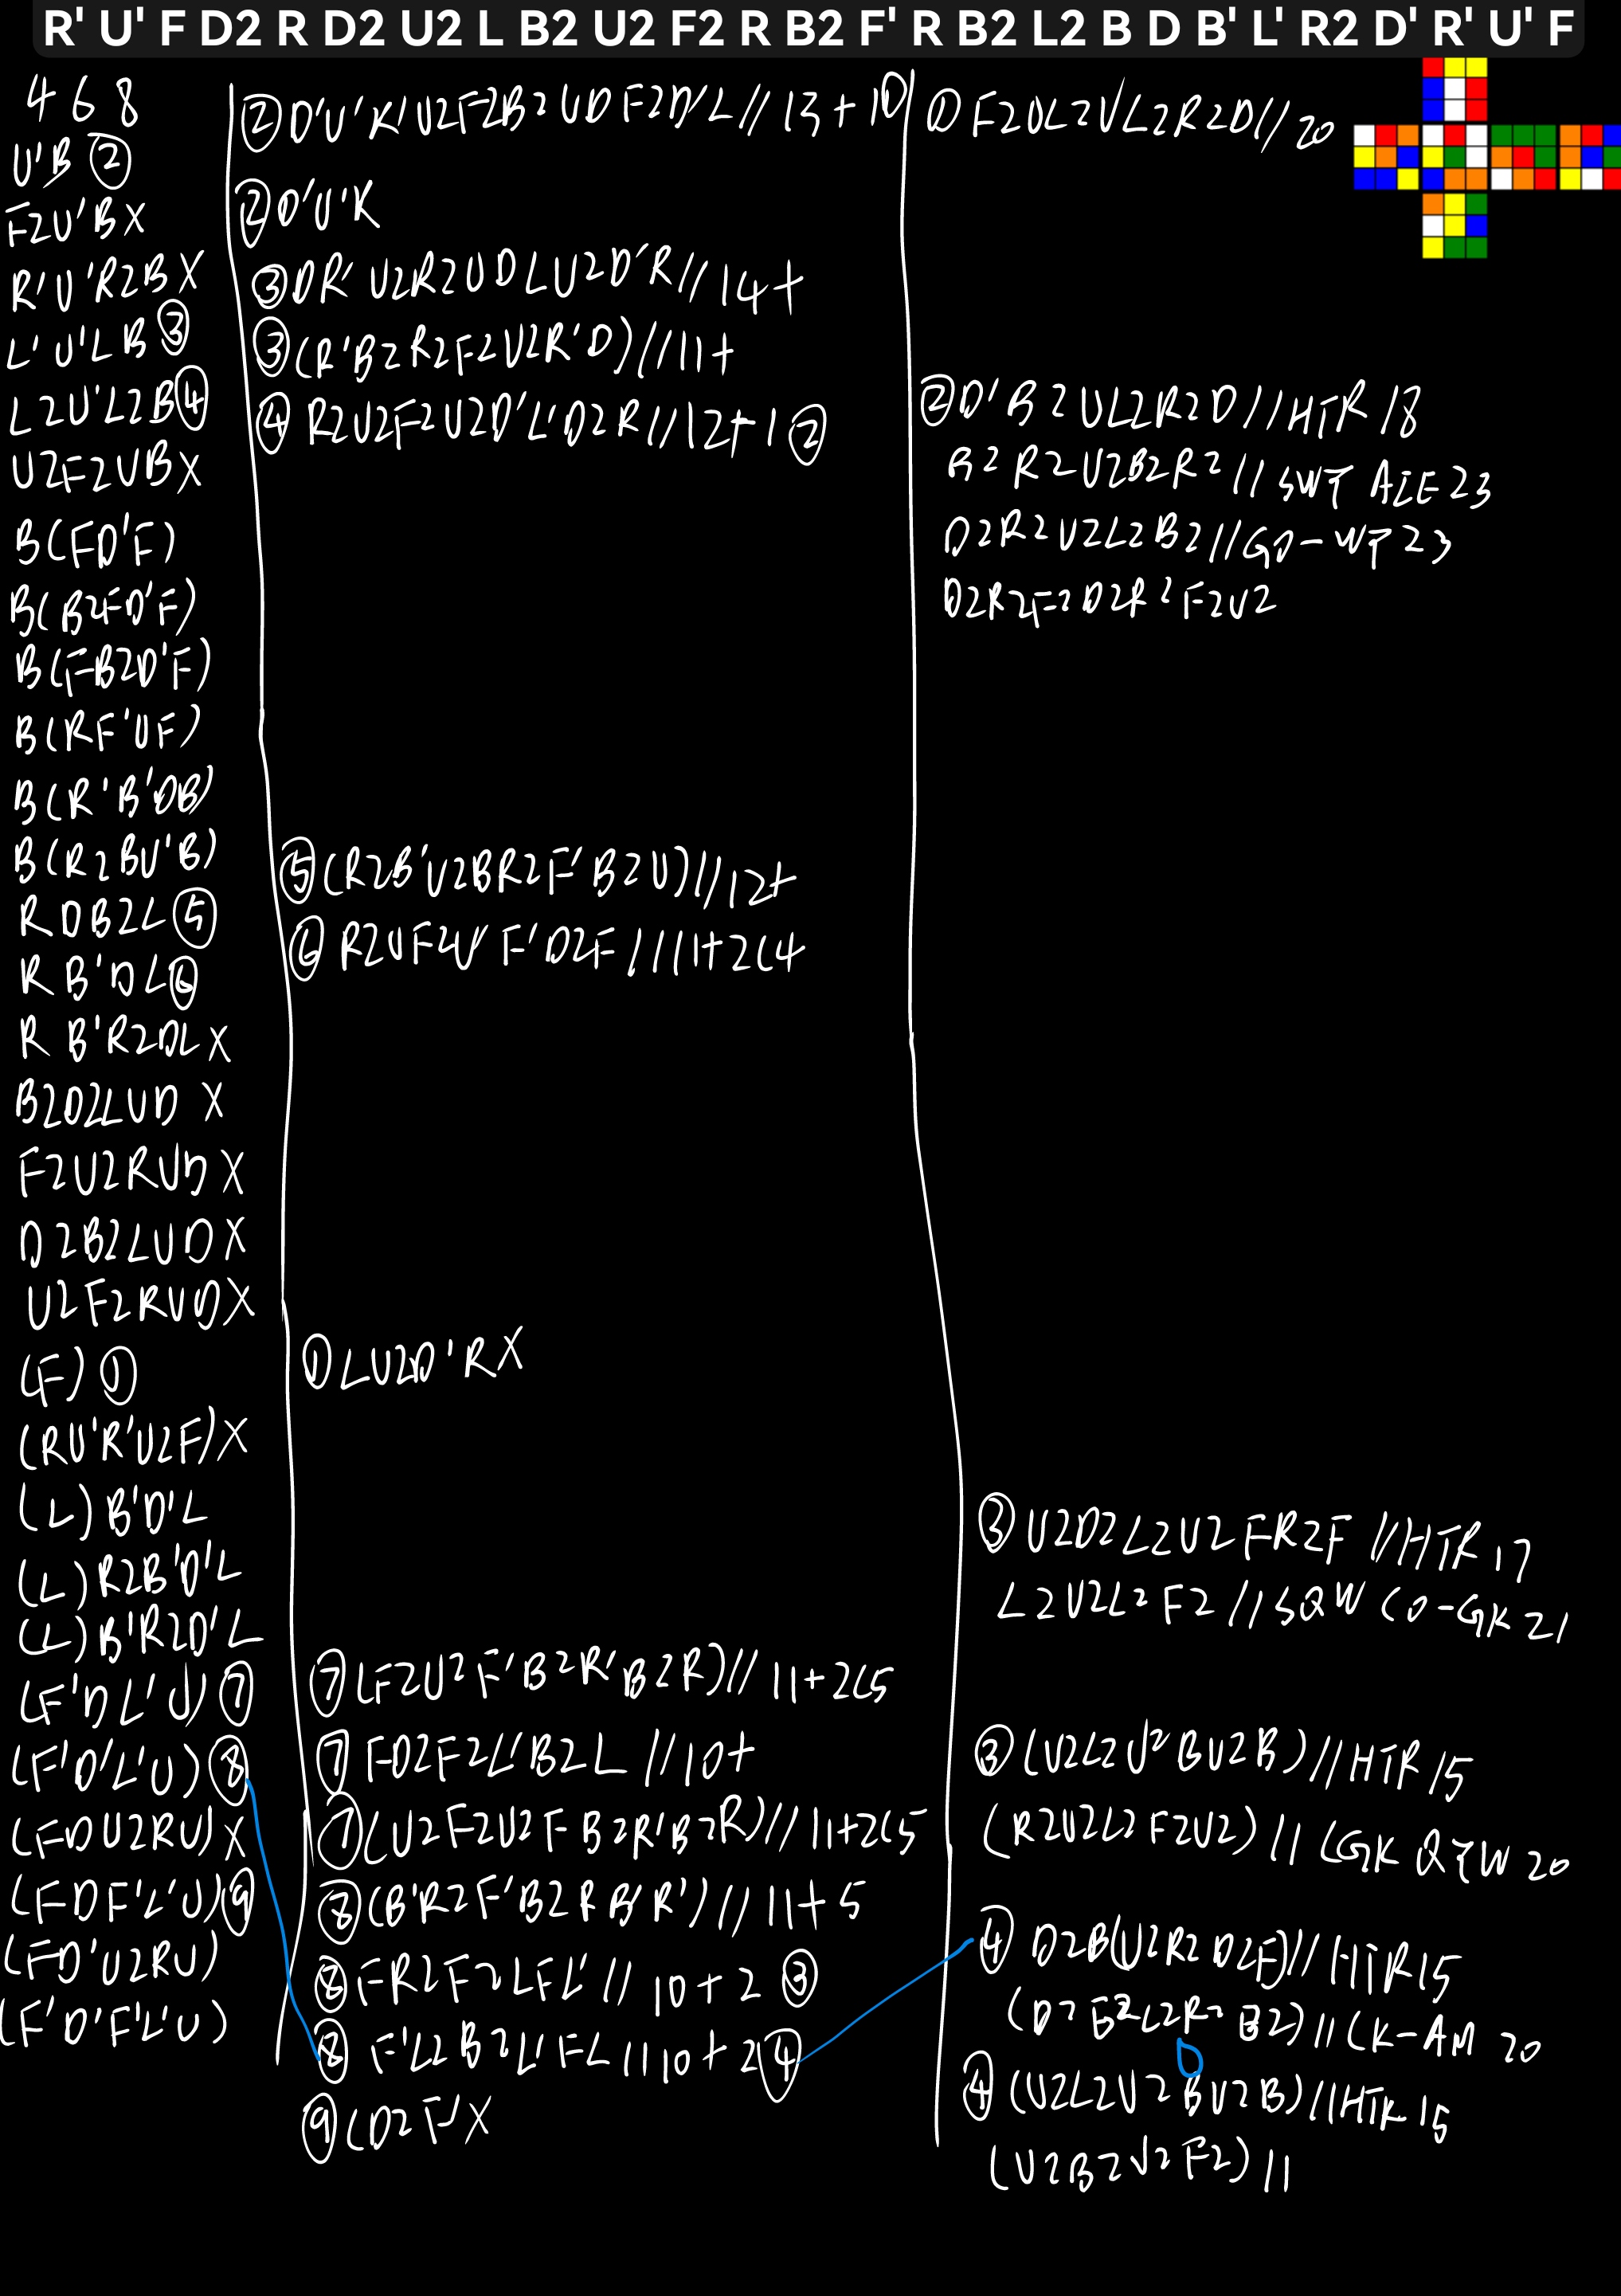 R' U' F D2 R D2 U2 L B2 U2 F2 R B2 F' R B2 L2 B D B' L' R2 D' R' U' F
4 6 8
U'B ②
F2U'B X
R'U'R2B X
L'U'LB ③
L2U'L2B ④
U2F2UB X
B(FD'F)
B(B2FD'F)
B(FB2D'F)
B(RF'UF)
B(R'B'DB)
B(R2BU'B)
RDB2L ⑤
RB'DL ⑥
RB'R2DL X
B2D2LUD X
F2U2RUD X
D2B2LUD X
U2F2RUD X
(F) ①
(RU'R'U2F) X
(L)B'D'L
(L)R2B'D'L
(L)B'R2D'L
(F'DL'U) ⑦
(F'D'L'U) ⑧
(FDU2RU) X
(FDF'L'U) ⑨
(FD'U2RU)
(F'D'F'L'U)
② D'U'R'U2F2B2UDF2D'L//13+ ①
② D'U'R
③ DR'U2R2UDLU2D'R//14+
③ (R'B2R2F2U2R'D)//11+
④ R2U2F2U2D'L'D2R//12+1 ②
⑤ (R2B'U2BR2F'B2U)//12+
⑥ R2UF2U'F'D2F//11+2C4
① LU2D'R X
⑦ (F2U2F'B2R'B2R)//11+2C5
⑦ FD2F2L'B2L//10+
⑦ (U2F2U2FB2R'B2R)//11+2C5
⑧ (B'R2F'B2RB'R')//11+5
⑧ FR2F2LFL'//10+2 ③
⑧ F'L2B2L'FL//10+2 ④
⑨ (D2F' X
① F2UL2U'L2R2D//20
② D'B2UL2R2D//HTR 18
B2R2U2B2R2//SWT AZE 23
D2R2U2L2B2//GD-WT 23
D2R2F2D2R2F2U2
③ U2D2L2U2FR2F//HTR 17
L2U2L2F2//SQW CO-GK 21
③ (U2L2U2BU2B)//HTR 15
(R2U2L2F2U2)//CGK QTW 20
④ D2B(U2R2D2F)//HTR 15
(D2B2L2R2B2)//CK-AM 20
D
④ (U2L2U2BU2B)//HTR 15
(U2B2U2F2)//